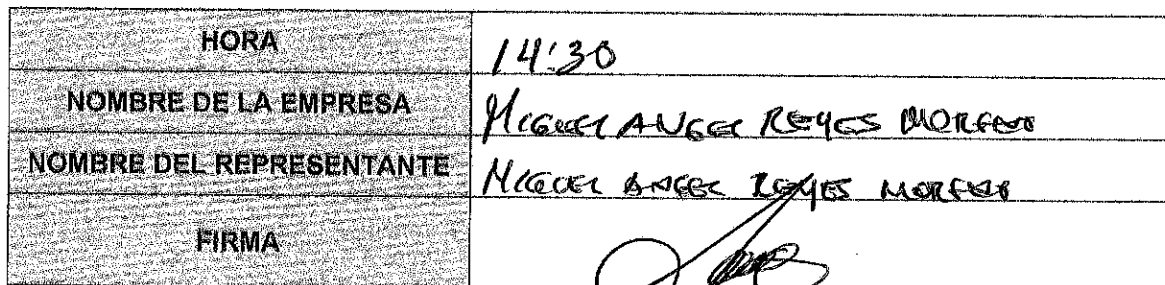 HORA 14:30
NOMBRE DE LA EMPRESA MIGUEL ANGEL REYES MORENO
NOMBRE DEL REPRESENTANTE MIGUEL ANGEL REYES MORENO
FIRMA